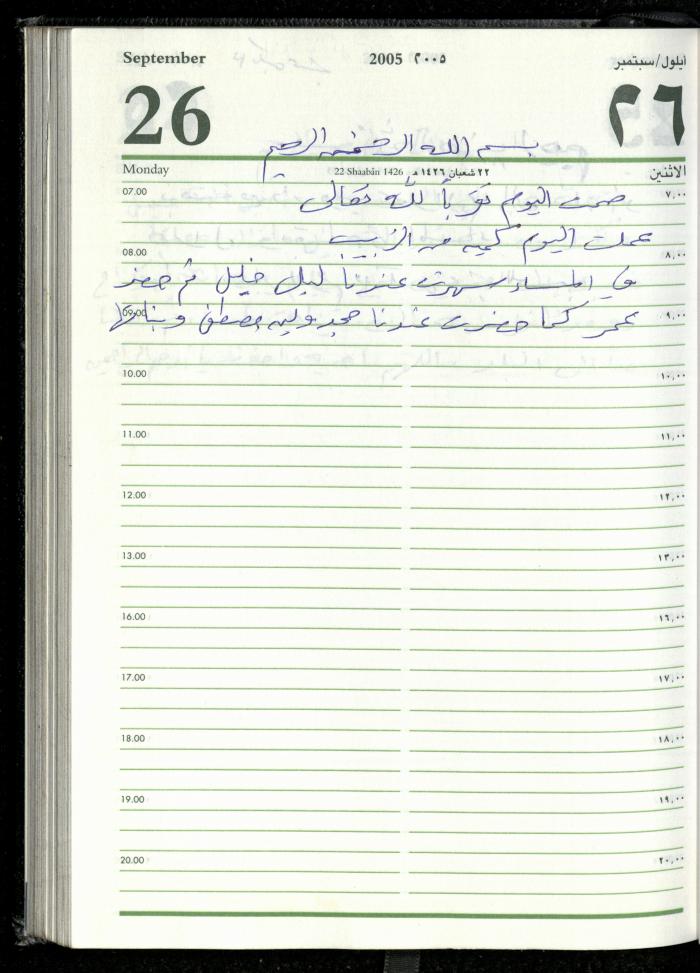 September 2005 ٢٠٠٥ ايلول/سبتمبر
26 ٢٦
بسم الله الرحمن الرحيم
Monday 22 Shaabân 1426 ٢٢ شعبان ١٤٢٦ هـ الاثنين
07.00 ٧,٠٠
صمت اليوم تقرباً لله تعالى
عملت اليوم كمية من الزبيب
08.00 ٨,٠٠
في المساء سهرت عندنا ليلى خليل ثم حضر
09.00 ٩,٠٠
عمر كما حضرت عندنا مصطفى وبناتها
10.00 ١٠,٠٠
11.00 ١١,٠٠
12.00 ١٢,٠٠
13.00 ١٣,٠٠
16.00 ١٦,٠٠
17.00 ١٧,٠٠
18.00 ١٨,٠٠
19.00 ١٩,٠٠
20.00 ٢٠,٠٠